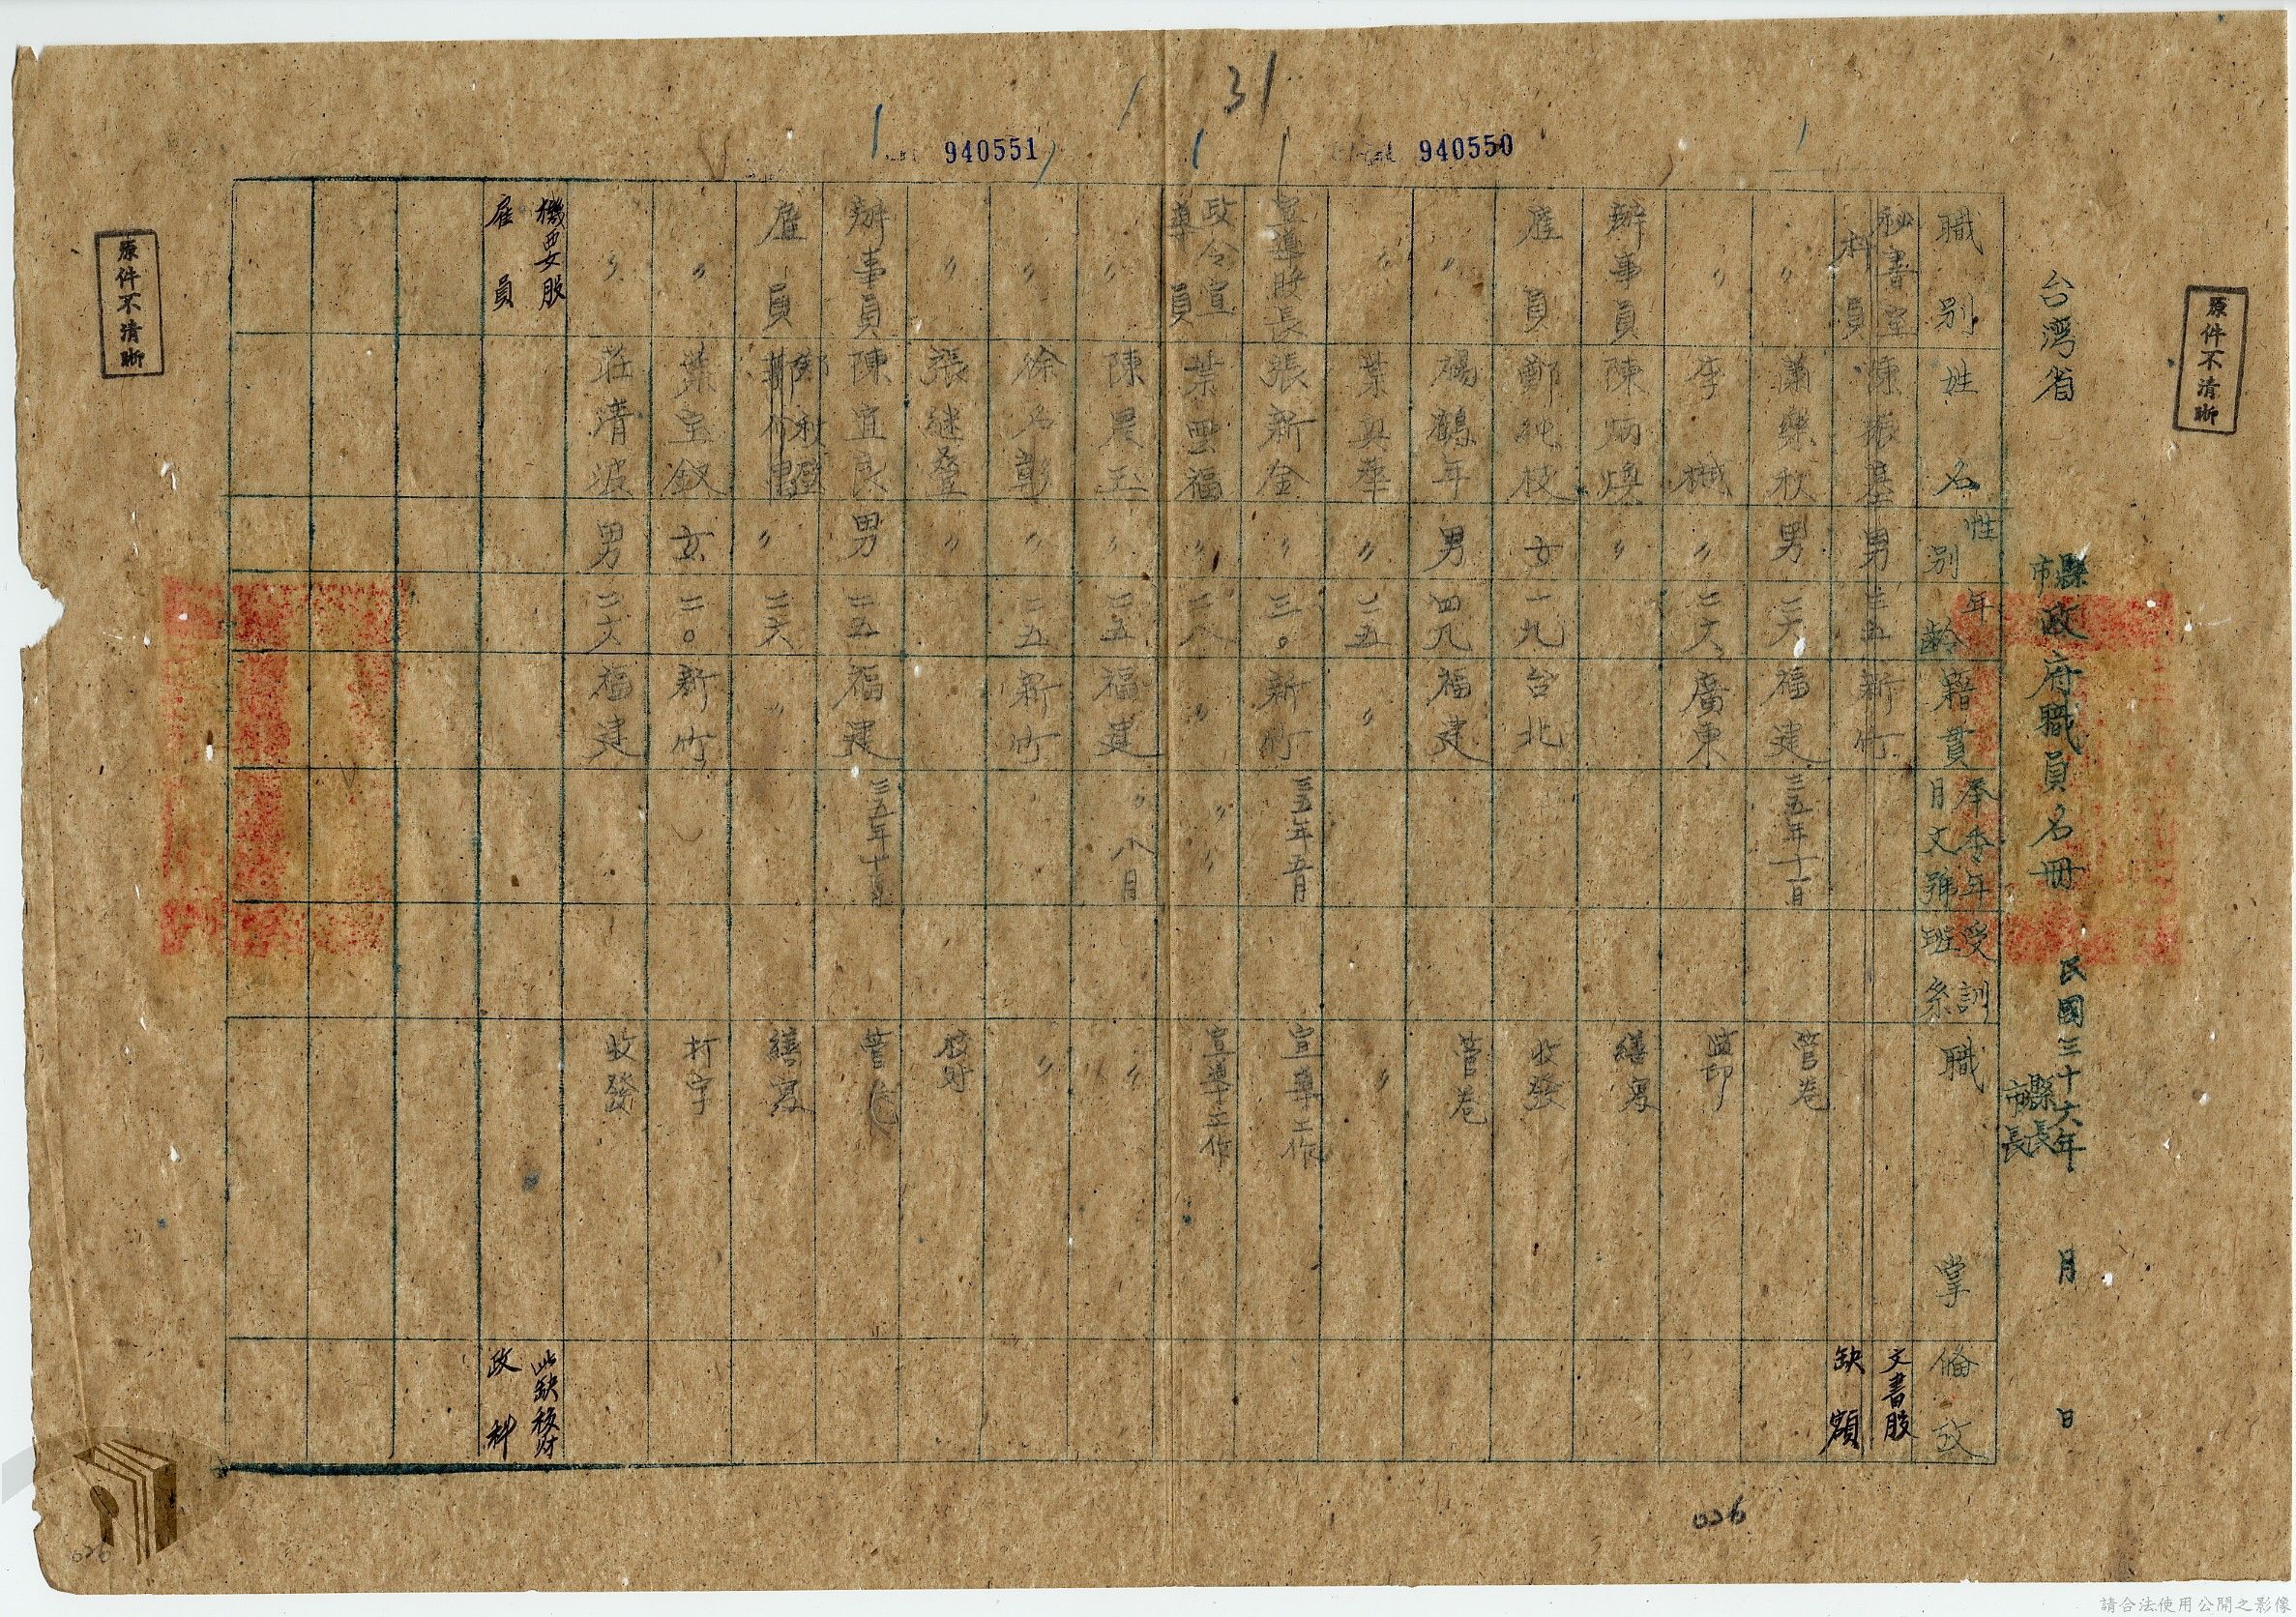 31
940550
940551
原件不清晰
台灣省 縣市政府職員名冊 民國三十六年 月 日
縣長
市長
職別 姓名 性別 年齡 籍貫 奉令年月文號 受訓班系 職掌 備攷
秘書室科員 陳振基 男 三五 新竹 文書股缺額
〃 蕭 秋 男 二六 福建 三五年十一月 管卷
〃 李 椷 〃 二六 廣東 監印
辦事員 陳炳煥 〃 繕寫
雇員 鄭純枝 女 一九 台北 收發
〃 楊鶴年 男 四九 福建 管卷
〃 葉其華 〃 二五 〃 〃
宣導股長 張新金 〃 三〇 新竹 三五年五月 宣導工作
政令宣導員 葉雲福 〃 二八 〃 〃 〃 宣導工作
〃 陳農玉 〃 二五 福建 〃 八月 〃
〃 徐名彰 〃 二五 新竹 〃
〃 張継登 〃 校對
辦事員 陳宜良 男 二五 福建 三五年十月 管卷
雇員 鄭秋 〃 二六 〃 繕寫
〃 葉宝釵 女 二〇 新竹 打字
〃 莊清波 男 二六 福建 收發
機要股雇員 此缺移財政科
原件不清晰
026
026
請合法使用公開之影像